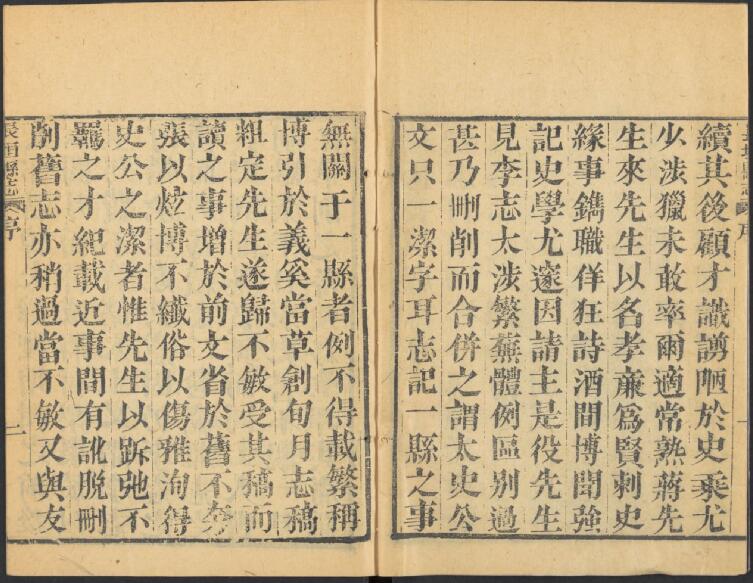 續其後顧才識謭陋於史乘尤
少涉獵未敢率爾適常熟蔣先
生來先生以名孝亷爲賢刺史
緣事鐫職佯狂詩酒間博聞強
記史學尤邃因請主是役先生
見李志太涉繁蕪體例區别過
甚乃刪削而合併之謂太史公
文只一潔字耳志記一縣之事
無關于一縣者例不得載繁稱
博引於義奚當草創旬月志稿
粗定先生遂歸不敏受其稿而
讀之事增於前文省於舊不夸
張以炫博不纖俗以傷雅洵得
史公之潔者惟先生以跅弛不
羈之才紀載近事間有訛脱刪
削舊志亦稍過當不敏又與友
長垣縣志 序 一